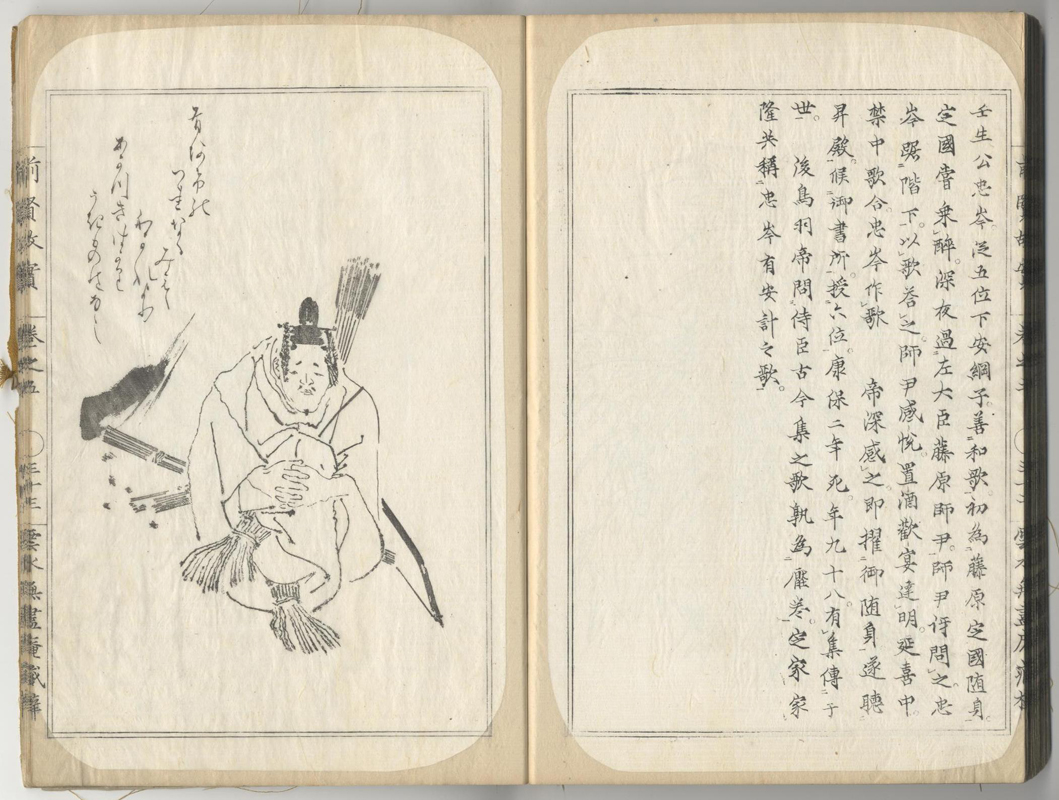 壬生公忠岑従五位下安綱子善和歌初為藤原定國随身
定國嘗乗酔深夜過左大臣藤原師尹師尹何問之忠
岑踞階下以歌答之師尹感悦置酒歓宴達明延喜中
禁中歌合忠岑作歌 帝深感之即擢御随身遂聴
昇殿候御書所授六位康保二年死年九十八有集傳于
世 後鳥羽帝問侍臣古今集之歌孰為壓巻定家家
隆共稱忠岑有安計之歌
有明の
つれなく
みえし
わかれより
あかつきはかり
うきものはなし
前賢故實
巻之五
三十三
雲水無盡庵藏梓